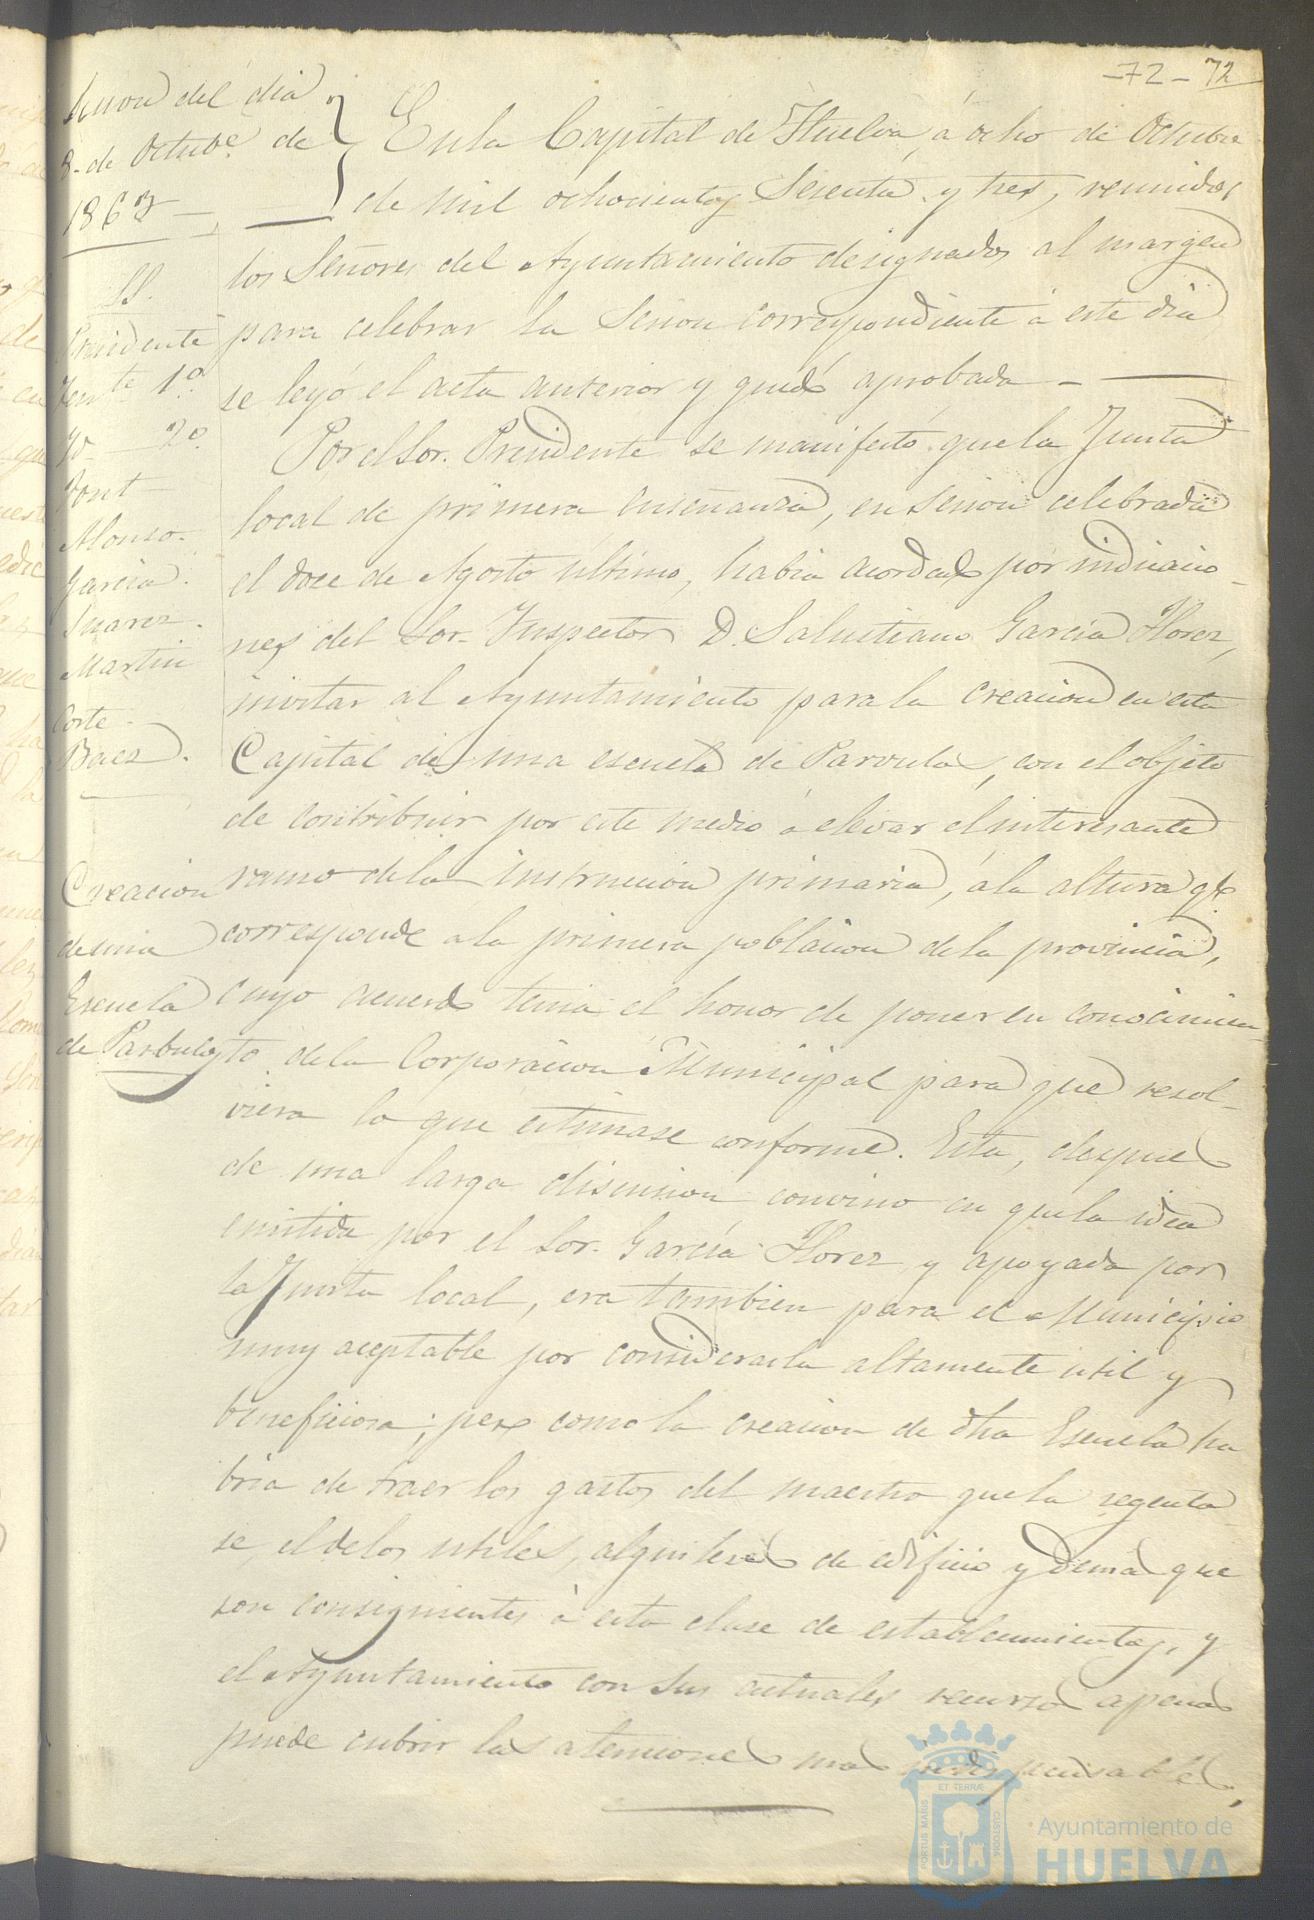 -72- 72
Sesion del dia
8 de Octubᵉ. de
1863
SS.
Presidente
Tenᵗᵉ 1º
Yº 2º
Font
Alonso.
Garcia.
Suarez.
Martin
Corte.
Baez.
Creacion
de una
Escuela
de Parbulos
En la Capital de Huelva, á ocho de Octubre
de mil ochocientos Sesenta y tres, reunidos
los Señores del Ayuntamiento designados al margen
para celebrar la Sesion correspondiente á este dia
se leyó el acta anterior y quedó aprobada —
Por el Sor. Presidente se manifestó que la Junta
local de primera enseñanza, en sesion celebrada
el doce de Agosto último, habia acordado por indicacio-
nes del Sor. Inspector D. Salustiano García Florez,
invitar al Ayuntamiento para la creacion en esta
Capital de una escuela de Parvulos, con el objeto
de contribuir por este medio á elevar el interesante
ramo de la instruccion primaria, á la altura qᵉ
corresponde a la primera poblacion de la provincia,
cuyo acuerdo tenia el honor de poner en conocimien-
to de la Corporacion Municipal para que resol-
viera lo que estimase conforme. Esta, despues
de una larga discusion convino en que la idea
emitida por el Sor. García Florez y apoyada por
la Junta local, era tambien para el Municipio
muy aceptable por considerarla altamente util y
beneficiosa; pero como la creacion de dha Escuela ha
bria de traer los gastos del maestro que la regenta
se, el de los utiles, alquileres de edificio y demas que
son consiguientes á esta clase de establecimientos, y
el Ayuntamiento con sus actuales recursos apenas
puede cubrir las atenciones mas indispensables,
PORTUS MARIS ET TERRÆ CUSTODIA
Ayuntamiento de
HUELVA